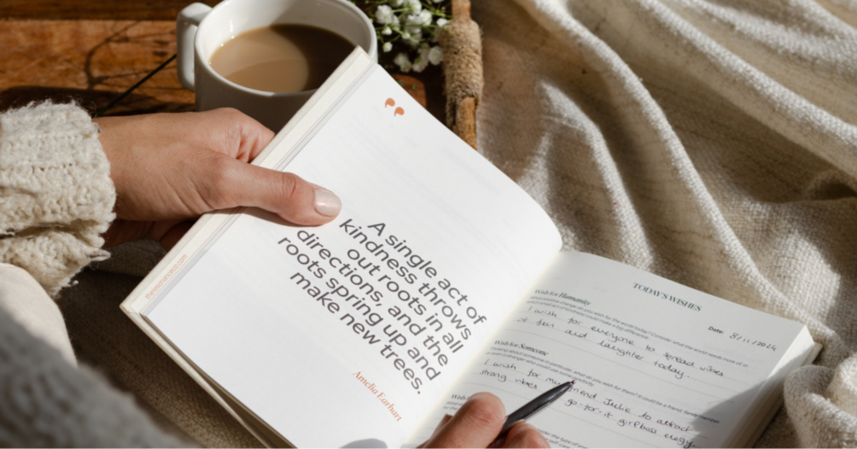 A single act of
kindness throws
out roots in all
directions, and the
roots spring up and
make new trees.
Amelia Earhart
TODAY'S WISHES
Date: 8/11/2024
Wish for Humanity
I wish for everyone to spread vibes
of fun and laughter today.
Wish for Someone
I wish for my friend Julie to attract
strong vibes go-for-it girlboss energy